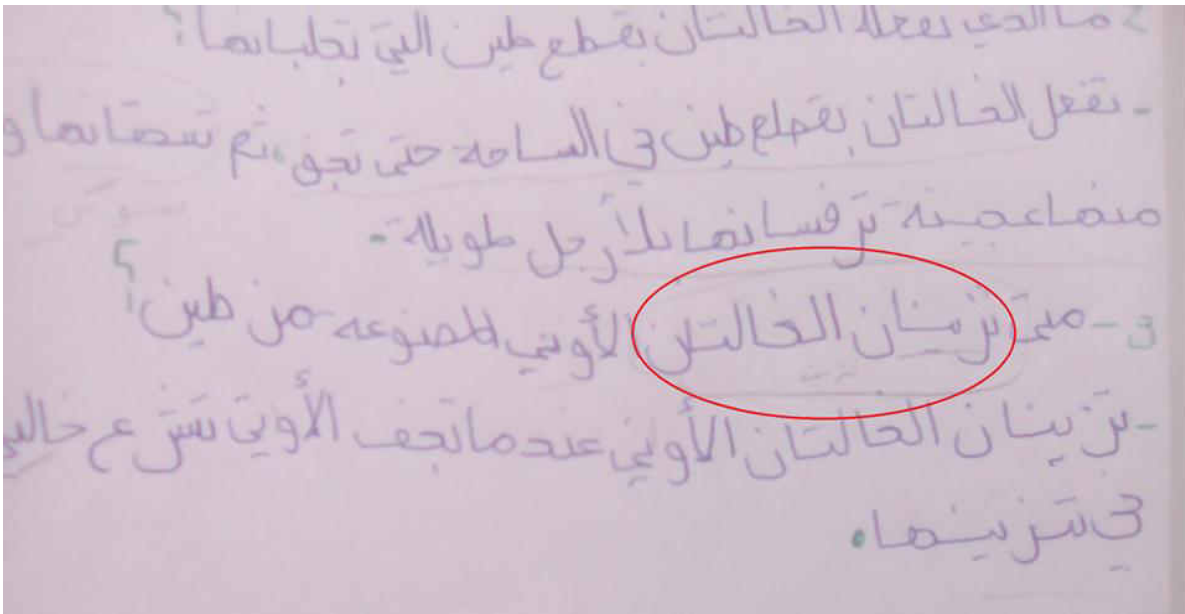 2 ما الذي تفعله الخالتان بقطع طين التي تجلبانها؟
- تفعل الخالتان بقطع طين في الساحة حتى تجف، ثم تسحقانها و
منها عجينة ترفسانها بلأرجل طويلة.
3 - متى تزينان الخالتان الأوني المصنوعه من طين؟
- تزينان الخالتان الأوني عندما تجف الأوني تشرع خالتي
في تزينها.